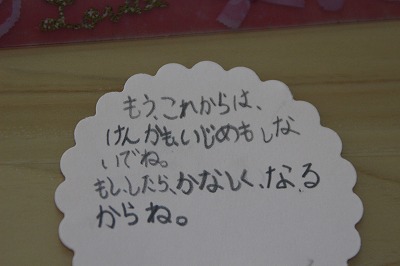 もう、これからは、
けんかも、いじめもしな
いでね。
もし、したら、かなしく、な、る
からね。